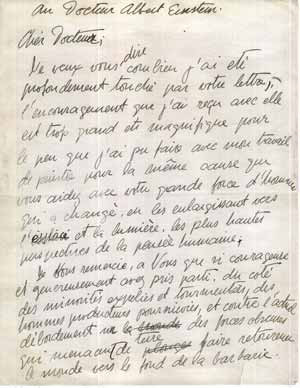 Au Docteur Albert Einstein.
Cher Docteur;
Je veux vous dire combien j'ai été
profondement touché par votre lettre,
l'encouragement que j'ai reçu avec elle
est trop grand et magnifique pour
le peu que j'ai pu faire avec mon travail
de peintre pour la même cause que
vous aidez avec votre grande force d'homme
qui a changé, en les enlargissant vers
et la lumière, les plus hautes
perspectives de la pensée humaine.
Je Vous remercie, a Vous que si courageuse
et genereusement avez pris parti, du coté
des minorités et tourmentées, des
hommes producteurs, et contre l'actuel
débordement des forces obscures
qui menacent de faire retourner
le monde vers le fond de la barbarie.